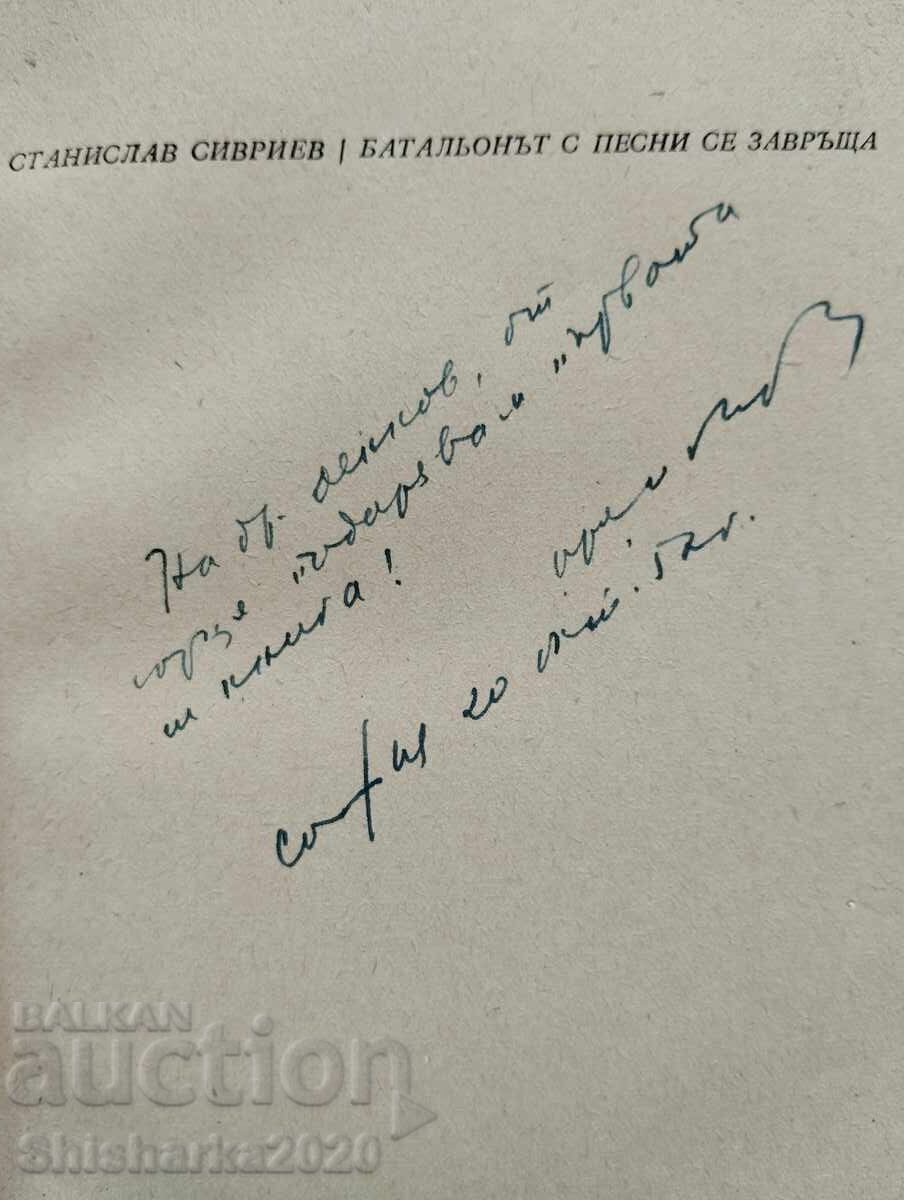 СТАНИСЛАВ СИВРИЕВ | БАТАЛЬОНЪТ С ПЕСНИ СЕ ЗАВРЪЩА
На др. Ленков, от
сърце "подарявам" първата
си книга!
София 20 окт. 57 г.
BALKAN
auction
Shisharka2020